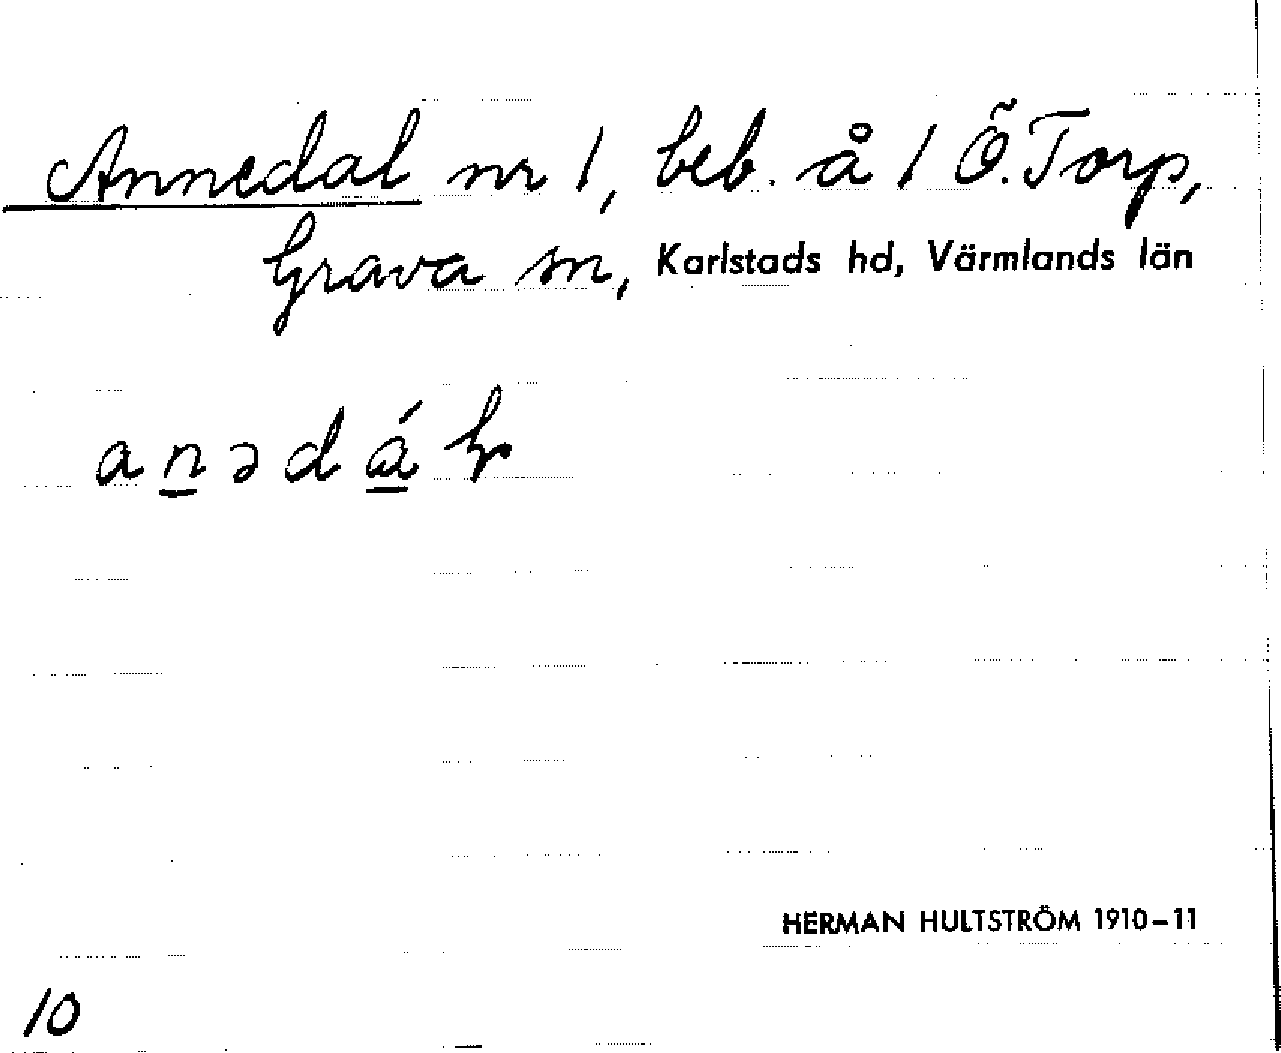 Annedal nr 1, beb. å 1 Ö. Torp,
Grava sn, Karlstads hd, Värmlands län
HERMAN HULTSTRÖM 1910–11
10